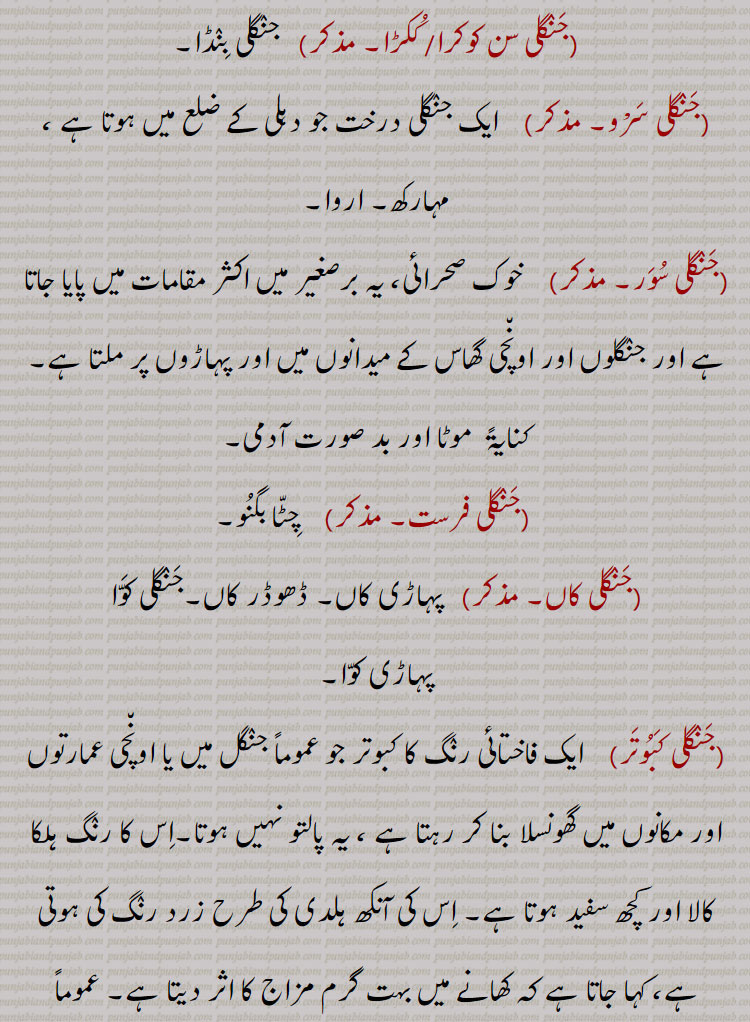 (جَنْگلی سن کوکرا/کُکڑا۔ مذکر) جنْگلی بِنْڈا۔
(جَنْگلی سَرْو۔ مذکر) ایک جنْگلی درخت جو دہلی کے ضلع میں ہوتا ہے ،
مہارکھ۔ اروا۔
(جَنْگلی سُوَر۔ مذکر) خوک صحرائی، یہ برصغیر میں اکثر مقامات میں پایا جاتا
ہے اور جنْگلوں اور اونّچی گھاس کے میدانوں میں اور پہاڑوں پر ملتا ہے۔
کنایۃً موٹا اور بد صورت آدمی۔
(جَنْگلی فرست۔ مذکر) چِٹّا بگنُو۔
(جَنْگلی کاں۔ مذکر) پہاڑی کاں۔ ڈھوڈر کاں۔ جَنْگلی کوَّا
پہاڑی کوّا۔
(جَنْگلی کَبُوتَر) ایک فاختائی رنْگ کا کبوتر جو عموماً جنْگل میں یا اونّچی عمارتوں
اور مکانوں میں گھونسلا بنا کر رہتا ہے ، یہ پالتو نہیں ہوتا۔اِس کا رنْگ ہلکا
کالا اور کچھ سفید ہوتا ہے۔ اِس کی آنکھ ہلدی کی طرح زرد رنْگ کی ہوتی
ہے، کہا جاتا ہے کہ کھانے میں بہت گرم مزاج کا اثر دیتا ہے۔ عموماً